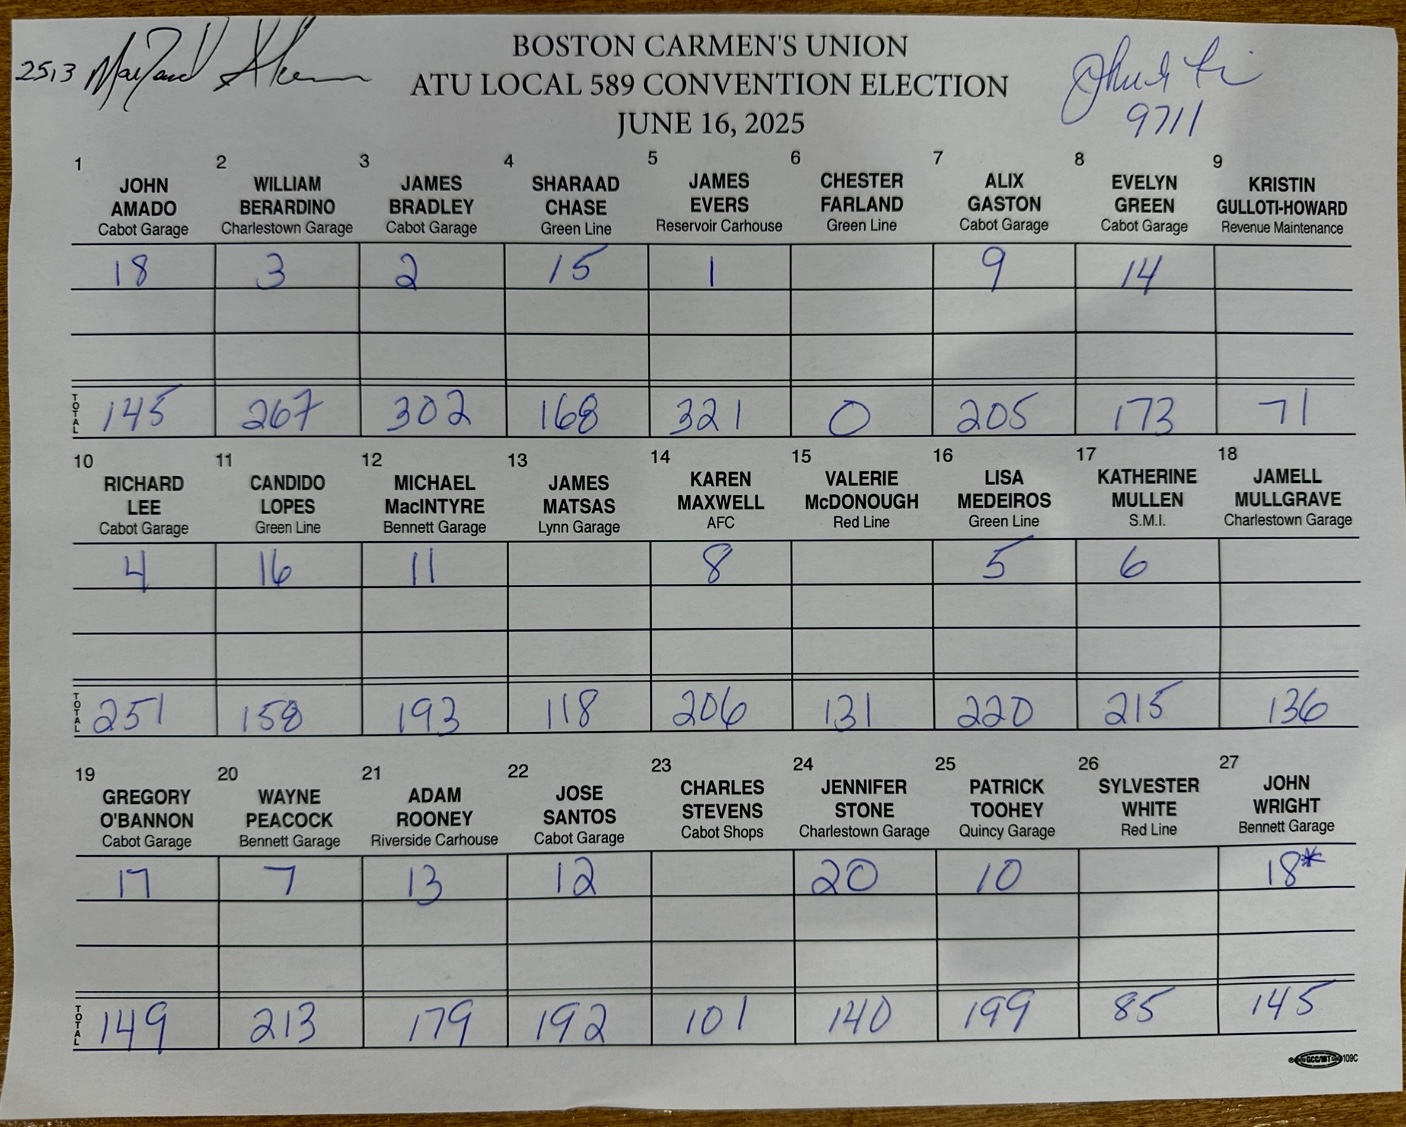 BOSTON CARMEN'S UNION
ATU LOCAL 589 CONVENTION ELECTION
JUNE 16, 2025
2513
9711
1 2 3 4 5 6 7 8 9
JOHN WILLIAM JAMES SHARAAD JAMES CHESTER ALIX EVELYN KRISTIN
AMADO BERARDINO BRADLEY CHASE EVERS FARLAND GASTON GREEN GULLOTI-HOWARD
Cabot Garage Charlestown Garage Cabot Garage Green Line Reservoir Carhouse Green Line Cabot Garage Cabot Garage Revenue Maintenance
18 3 2 15 1 9 14
TOTAL 145 267 302 168 321 0 205 173 71
10 11 12 13 14 15 16 17 18
RICHARD CANDIDO MICHAEL JAMES KAREN VALERIE LISA KATHERINE JAMELL
LEE LOPES MacINTYRE MATSAS MAXWELL McDONOUGH MEDEIROS MULLEN MULLGRAVE
Cabot Garage Green Line Bennett Garage Lynn Garage AFC Red Line Green Line S.M.I. Charlestown Garage
4 16 11 8 5 6
TOTAL 251 158 193 118 206 131 220 215 136
19 20 21 22 23 24 25 26 27
GREGORY WAYNE ADAM JOSE CHARLES JENNIFER PATRICK SYLVESTER JOHN
O'BANNON PEACOCK ROONEY SANTOS STEVENS STONE TOOHEY WHITE WRIGHT
Cabot Garage Bennett Garage Riverside Carhouse Cabot Garage Cabot Shops Charlestown Garage Quincy Garage Red Line Bennett Garage
17 7 13 12 20 10 18*
TOTAL 149 213 179 192 101 140 199 85 145
109C